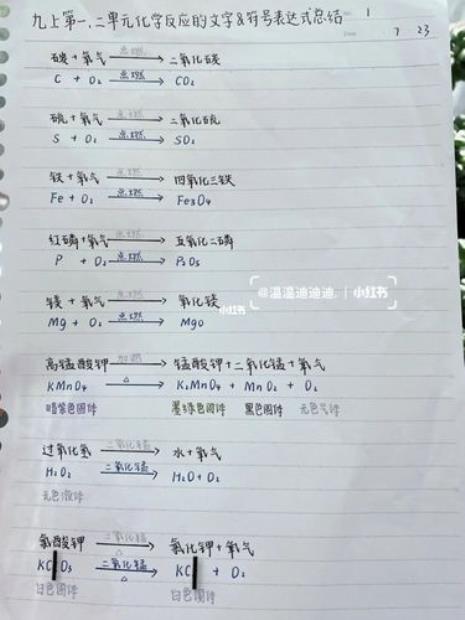 九上第一、二单元化学反应的文字&符号表达式总结
1
7 23
碳 + 氧气 点燃→ 二氧化碳
C + O₂ 点燃→ CO₂
硫 + 氧气 点燃→ 二氧化硫
S + O₂ 点燃→ SO₂
铁 + 氧气 点燃→ 四氧化三铁
Fe + O₂ 点燃→ Fe₃O₄
红磷 + 氧气 点燃→ 五氧化二磷
P + O₂ 点燃→ P₂O₅
@温温迪迪迪. | 小红书
镁 + 氧气 点燃→ 氧化镁
小红书
Mg + O₂ 点燃→ MgO
高锰酸钾 加热→ 锰酸钾 + 二氧化锰 + 氧气
KMnO₄ △→ K₂MnO₄ + MnO₂ + O₂
暗紫色固体 墨绿色固体 黑色固体 无色气体
过氧化氢 二氧化锰→ 水 + 氧气
H₂O₂ 二氧化锰→ H₂O + O₂
无色液体
氯酸钾 二氧化锰 △→ 氯化钾 + 氧气
KClO₃ 二氧化锰 △→ KCl + O₂
白色固体 白色固体